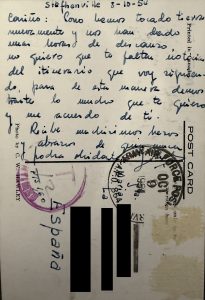 Stephenville 3-10-54
Cariño: Como hemos tocado tierra
nuevamente y nos han dado
unas horas de descanso
no quiero que te falten noticias
del itinerario que voy siguien-
do, para de esta manera demos-
trarte lo mucho que te quiero
y me acuerdo de ti.
Recibe muchísimos besos
y abrazos de quien nunca
podrá olvidarte
España
La
POST CARD
AIR FORCE POST
OCT
9
1954
Printed in
Photo by G.